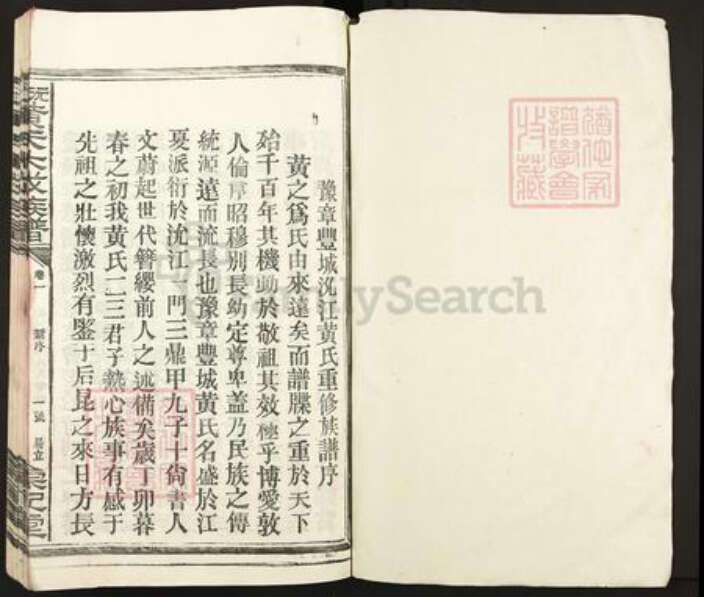 豫章豐城沇江黃氏重修族譜序
黃之爲氏由來遠矣而譜牒之重於天下
始千百年其機動於敬祖其效極乎博愛敦
人倫序昭穆別長幼定尊卑蓋乃民族之傳
統源遠而流長也豫章豐城黃氏名盛於江
夏派衍於沇江一門三鼎甲九子十尚書人
文蔚起世代簪纓前人之述備矣歲丁卯暮
春之初我黃氏二三君子熱心族事有感于
先祖之壯懷激烈有鑒于后昆之來日方長
黃氏大成族譜
卷一
一號
FamilySearch